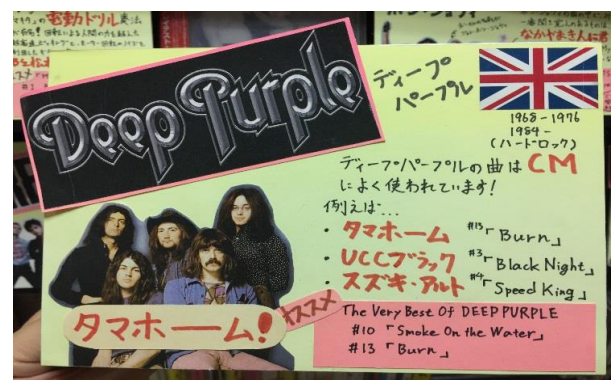 電動ドリル奏法
なかやまきんに君
Deep Purple
ディープ
パープル
1968-1976
1984-
(ハードロック)
ディープパープルの曲はCM
によく使われています!
例えば…
・タマホーム #13「Burn」
・UCCブラック #3「Black Night」
・スズキ・アルト #4「Speed King」
タマホーーム!
オススメ
The Very Best Of DEEP PURPLE
#10「Smoke On the Water」
#13「Burn」